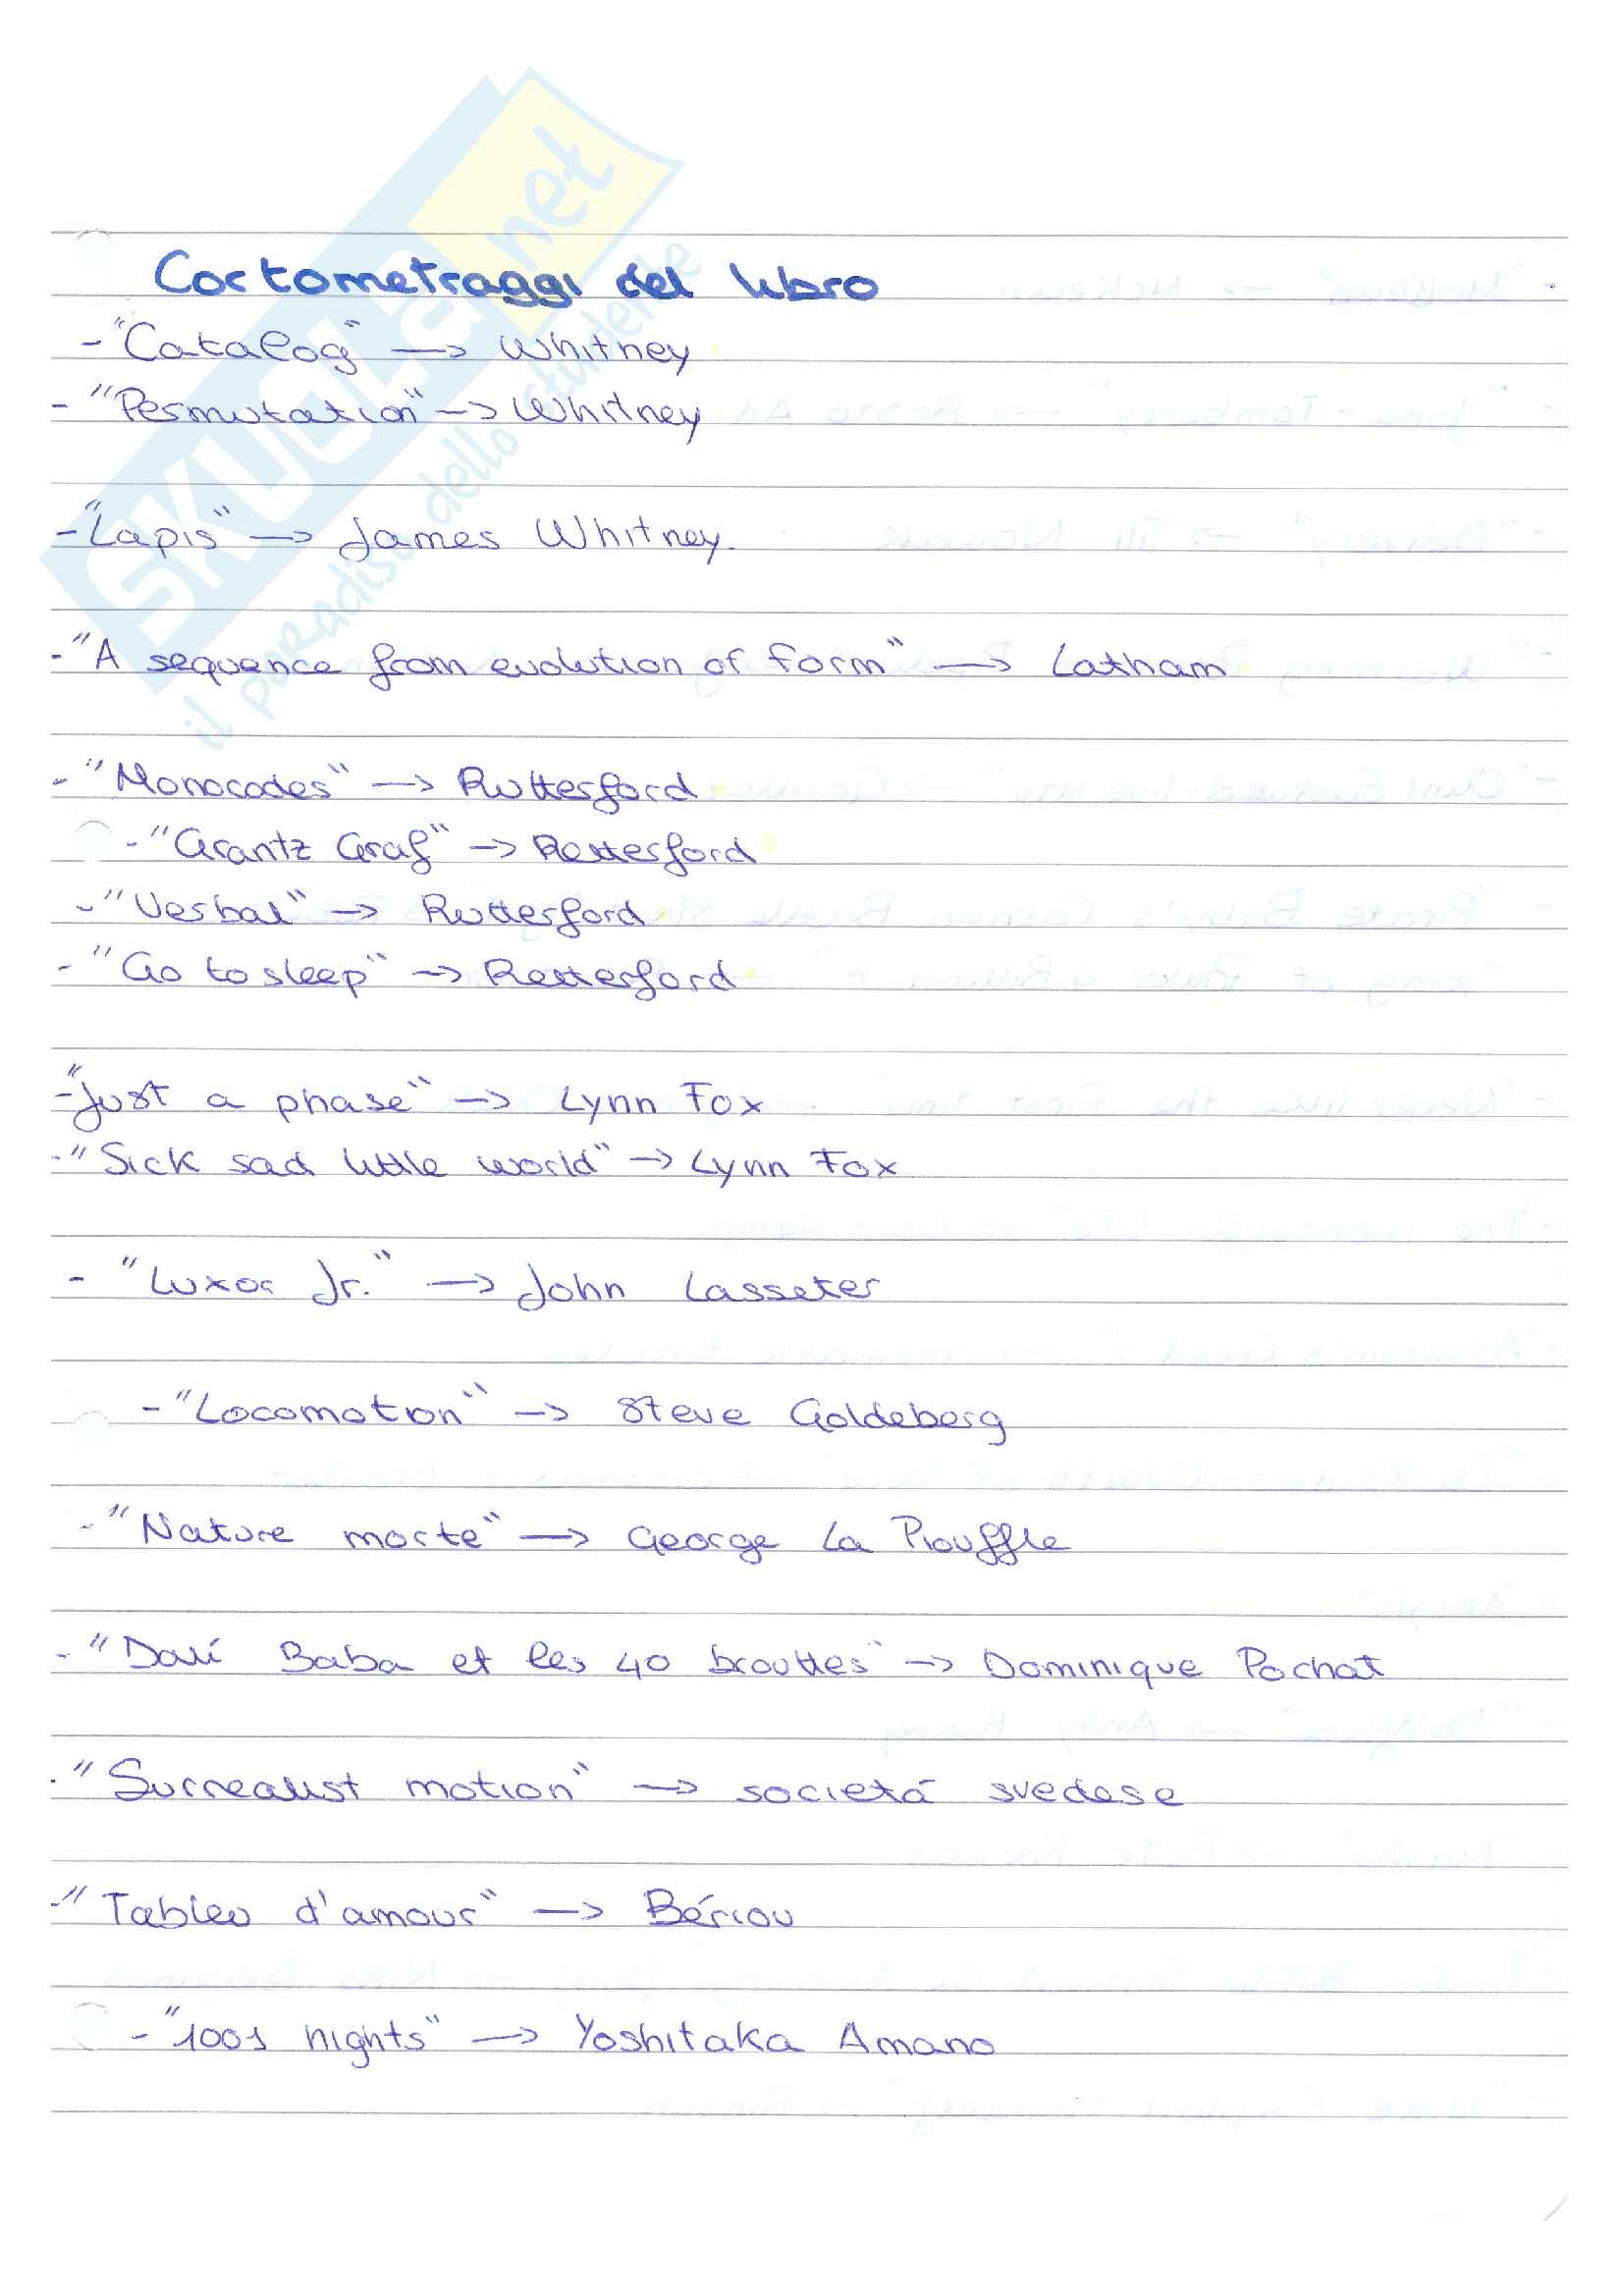 SKUOLA.net
il paradiso dello studente
Cortometraggi del libro
- "Catalog" -> Whitney
- "Permutation" -> Whitney
- "Lapis" -> James Whitney.
- "A sequence from evolution of form" -> Latham
- "Monocodes" -> Rutterford
- "Grantz Graf" -> Rutterford
- "Verbal" -> Rutterford
- "Go to sleep" -> Rutterford
- "Just a phase" -> Lynn Fox
- "Sick sad little world" -> Lynn Fox
- "Luxor Jr." -> John Lasseter
- "Locomotion" -> Steve Goldeberg
- "Nature morte" -> George La Piouffle
- "Dalí Baba et les 40 brouttes" -> Dominique Pochat
- "Surrealist motion" -> societá svedese
- "Tableu d'amour" -> Bériou
- "1001 nights" -> Yoshitaka Amano